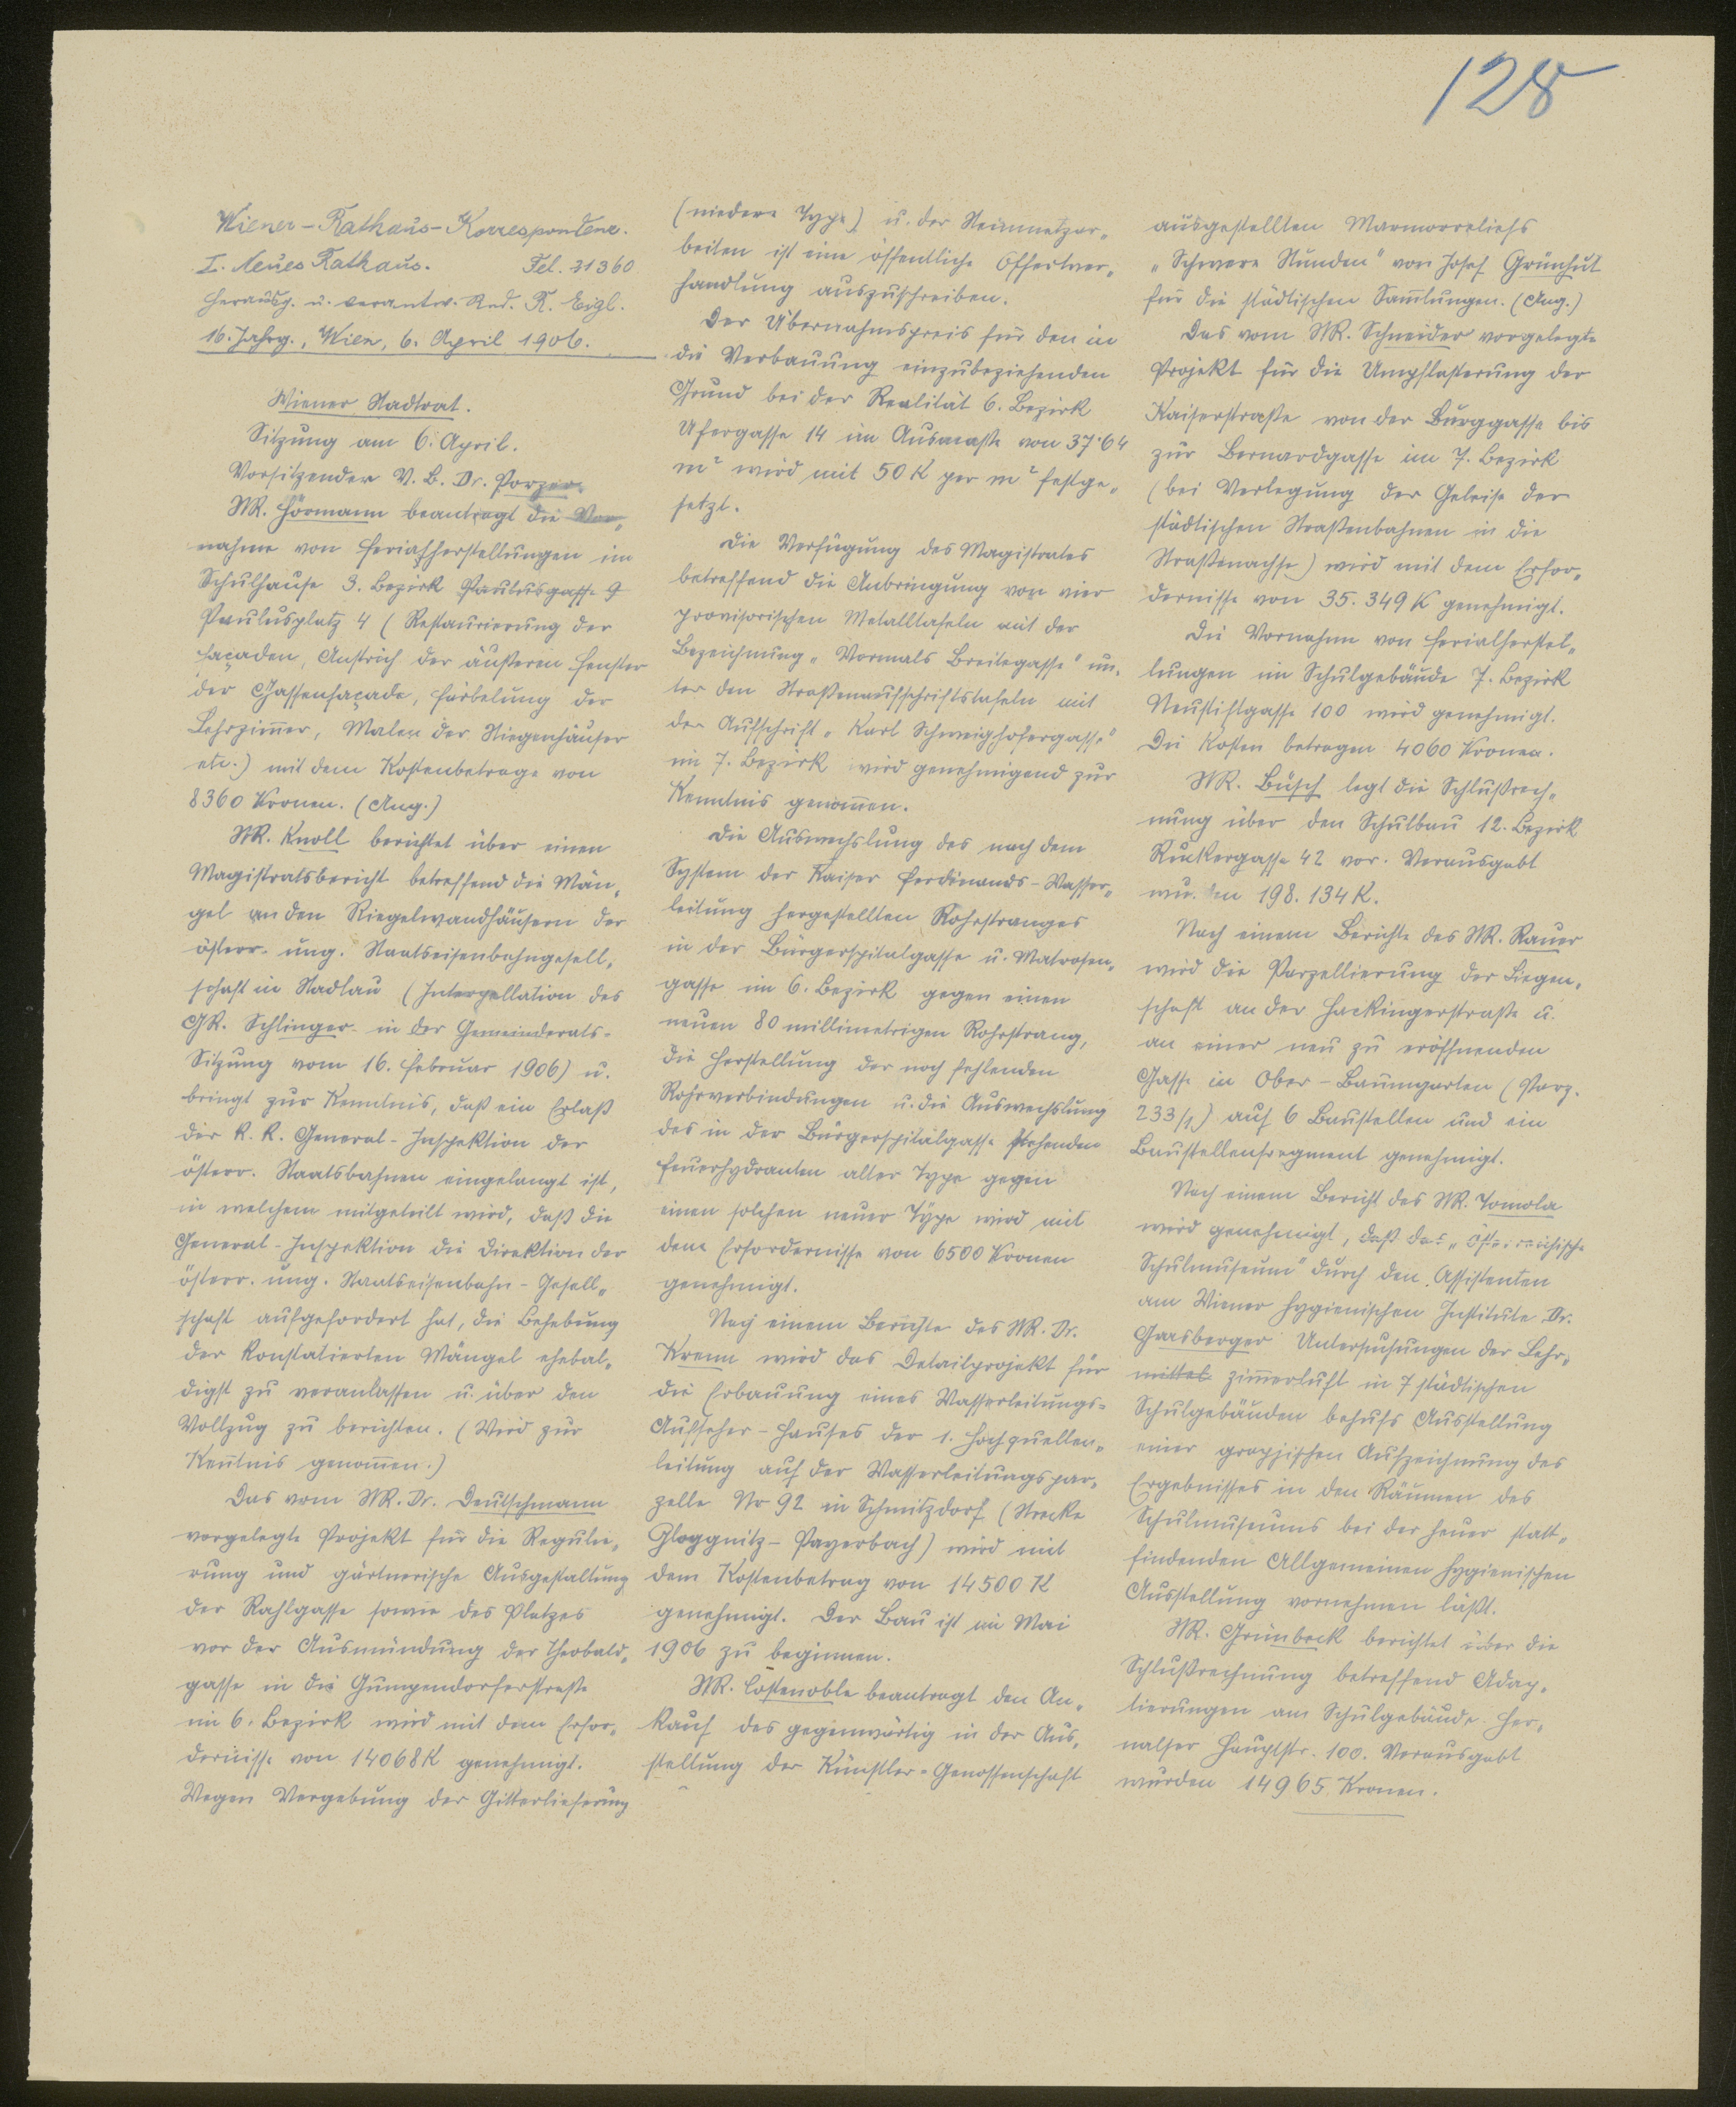 128
Wiener-Rathaus-Korrespondenz.
I. Neues Rathaus. Tel. 31360
Herausg. u. verantw. Red. R. Eigl.
16. Jahrg., Wien, 6. April 1906.
Wiener Stadtrat.
Sitzung am 6. April.
Vorsitzender V. B. Dr. Porzer.
StR. Hörmann beantragt die Vor„
nahme von Ferialherstellungen im
Schulhause 3. Bezirk Paulusgasse 9
Paulusplatz 4 (Restaurierung der
Façaden, Anstrich der äußeren Fenster
der Gassenfaçade, Färbelung der
Lehrzim̅er, Malen der Stiegenhäuser
etc.) mit dem Kostenbetrage von
8360 Kronen. (Ang.)
StR. Knoll berichtet über einen
Magistratsbericht betreffend die Män„
gel an den Riegelwandhäusern der
österr. ung. Staatseisenbahngesell„
schaft in Stadlau (Interpellation des
GR. Schlinger in der Gemeinderats-
Sitzung vom 16. Februar 1906) u.
bringt zur Kenntnis, daß ein Erlaß
der k. k. General-Inspektion der
österr. Staatsbahnen eingelangt ist,
in welchem mitgeteilt wird, daß die
General-Inspektion die Direktion der
österr. ung. Staatseisenbahn-Gesell„
schaft aufgefordert hat, die Behebung
der konstatierten Mängel ehebal„
digst zu veranlassen u. über den
Vollzug zu berichten. (Wird zur
Kentnis genom̅en.)
Das vom StR. Dr. Deutschmann
vorgelegte Projekt für die Regulie„
rung und gärtnerische Ausgestaltung
der Rahlgasse sowie des Platzes
vor der Ausmündung der Theobald„
gasse in die Gumpendorferstraße
im 6. Bezirk wird mit dem Erfor„
dernisse von 14068 K genehmigt.
Wegen Vergebung der Gitterlieferung
(niedere Type) u. der Steinmetzar„
beiten ist eine öffentliche Offertver„
handlung auszuschreiben.
Der Übernahmspreis für den in
die Verbauung einzubeziehenden
Grund bei der Realität 6. Bezirk
Ufergasse 14 im Ausmaße von 37·64
m² wird mit 50 K per m² festge„
setzt.
Die Verfügung des Magistrates
betreffend die Anbringung von vier
provisorischen Metalltafeln mit der
Bezeichnung „Vormals Breitegasse" un„
ter den Straßenaufschriftstafeln mit
der Aufschrift „Karl Schweighofergasse"
im 7. Bezirk wird genehmigend zur
Kenntnis genom̅en.
Die Auswechslung des nach dem
System der Kaiser Ferdinands-Wasser„
leitung hergestellten Rohrstranges
in der Bürgerspitalgasse u. Matrosen„
gasse im 6. Bezirk gegen einen
neuen 80 millimetrigen Rohrstrang,
die Herstellung der noch fehlenden
Rohrverbindungen u. die Auswechslung
des in der Bürgerspitalgasse stehenden
Feuerhydranten alter Type gegen
einen solchen neuer Type wird mit
dem Erfordernisse von 6500 Kronen
genehmigt.
Nach einem Berichte des StR. Dr.
Krenn wird das Detailprojekt für
die Erbauung eines Wasserleitungs-
Aufseher-Hauses der 1. Hochquellen„
leitung auf der Wasserleitungspar„
zelle Nr 92 in Schmitzdorf (Strecke
Gloggnitz-Payerbach) wird mit
dem Kostenbetrag von 14500 K
genehmigt. Der Bau ist im Mai
1906 zu beginnen.
StR. Costenoble beantragt den An„
kauf des gegenwärtig in der Aus„
stellung der Künstler-Genossenschaft
ausgestellten Marmorreliefs
„Schwere Stunden" von Josef Grünhut
für die städtischen Sam̅lungen. (Ang.)
Das vom StR. Schneider vorgelegte
Projekt für die Umpflasterung der
Kaiserstraße von der Burggasse bis
zur Bernardgasse im 7. Bezirk
(bei Verlegung der Geleise der
städtischen Straßenbahnen in die
Straßenachse) wird mit dem Erfor„
dernisse von 35.349 K genehmigt.
Die Vornahme von Ferialherstel„
lungen im Schulgebäude 7. Bezirk
Neustiftgasse 100 wird genehmigt.
Die Kosten betragen 4060 Kronen.
StR. Büsch legt die Schlußrech„
nung über den Schulbau 12. Bezirk
Ruckergasse 42 vor. Verausgabt
wurden 198.134 K.
Nach einem Berichte des StR. Rauer
wird die Parzellierung der Liegen„
schaft an der Hackingerstraße u.
an einer neu zu eröffnenden
Gasse in Ober-Baumgarten (Parz.
233/1) auf 6 Baustellen und ein
Baustellenfragment genehmigt.
Nach einem Bericht des StR. Tomola
wird genehmigt, daß das „österreichische
Schulmuseum" durch den Assistenten
am Wiener hygienischen Institute Dr.
Grasberger Untersuchungen der Lehr„
mittel zim̅erluft in 7 städtischen
Schulgebäuden behufs Ausstellung
einer graphischen Aufzeichnung des
Ergebnisses in den Räumen des
Schulmuseums bei der heuer statt„
findenden Allgemeinen hygienischen
Ausstellung vornehmen läßt.
StR. Grünbeck berichtet über die
Schlußrechnung betreffend Adap„
tierungen am Schulgebäude Her„
nalser Hauptstr. 100. Verausgabt
wurden 14965 Kronen.